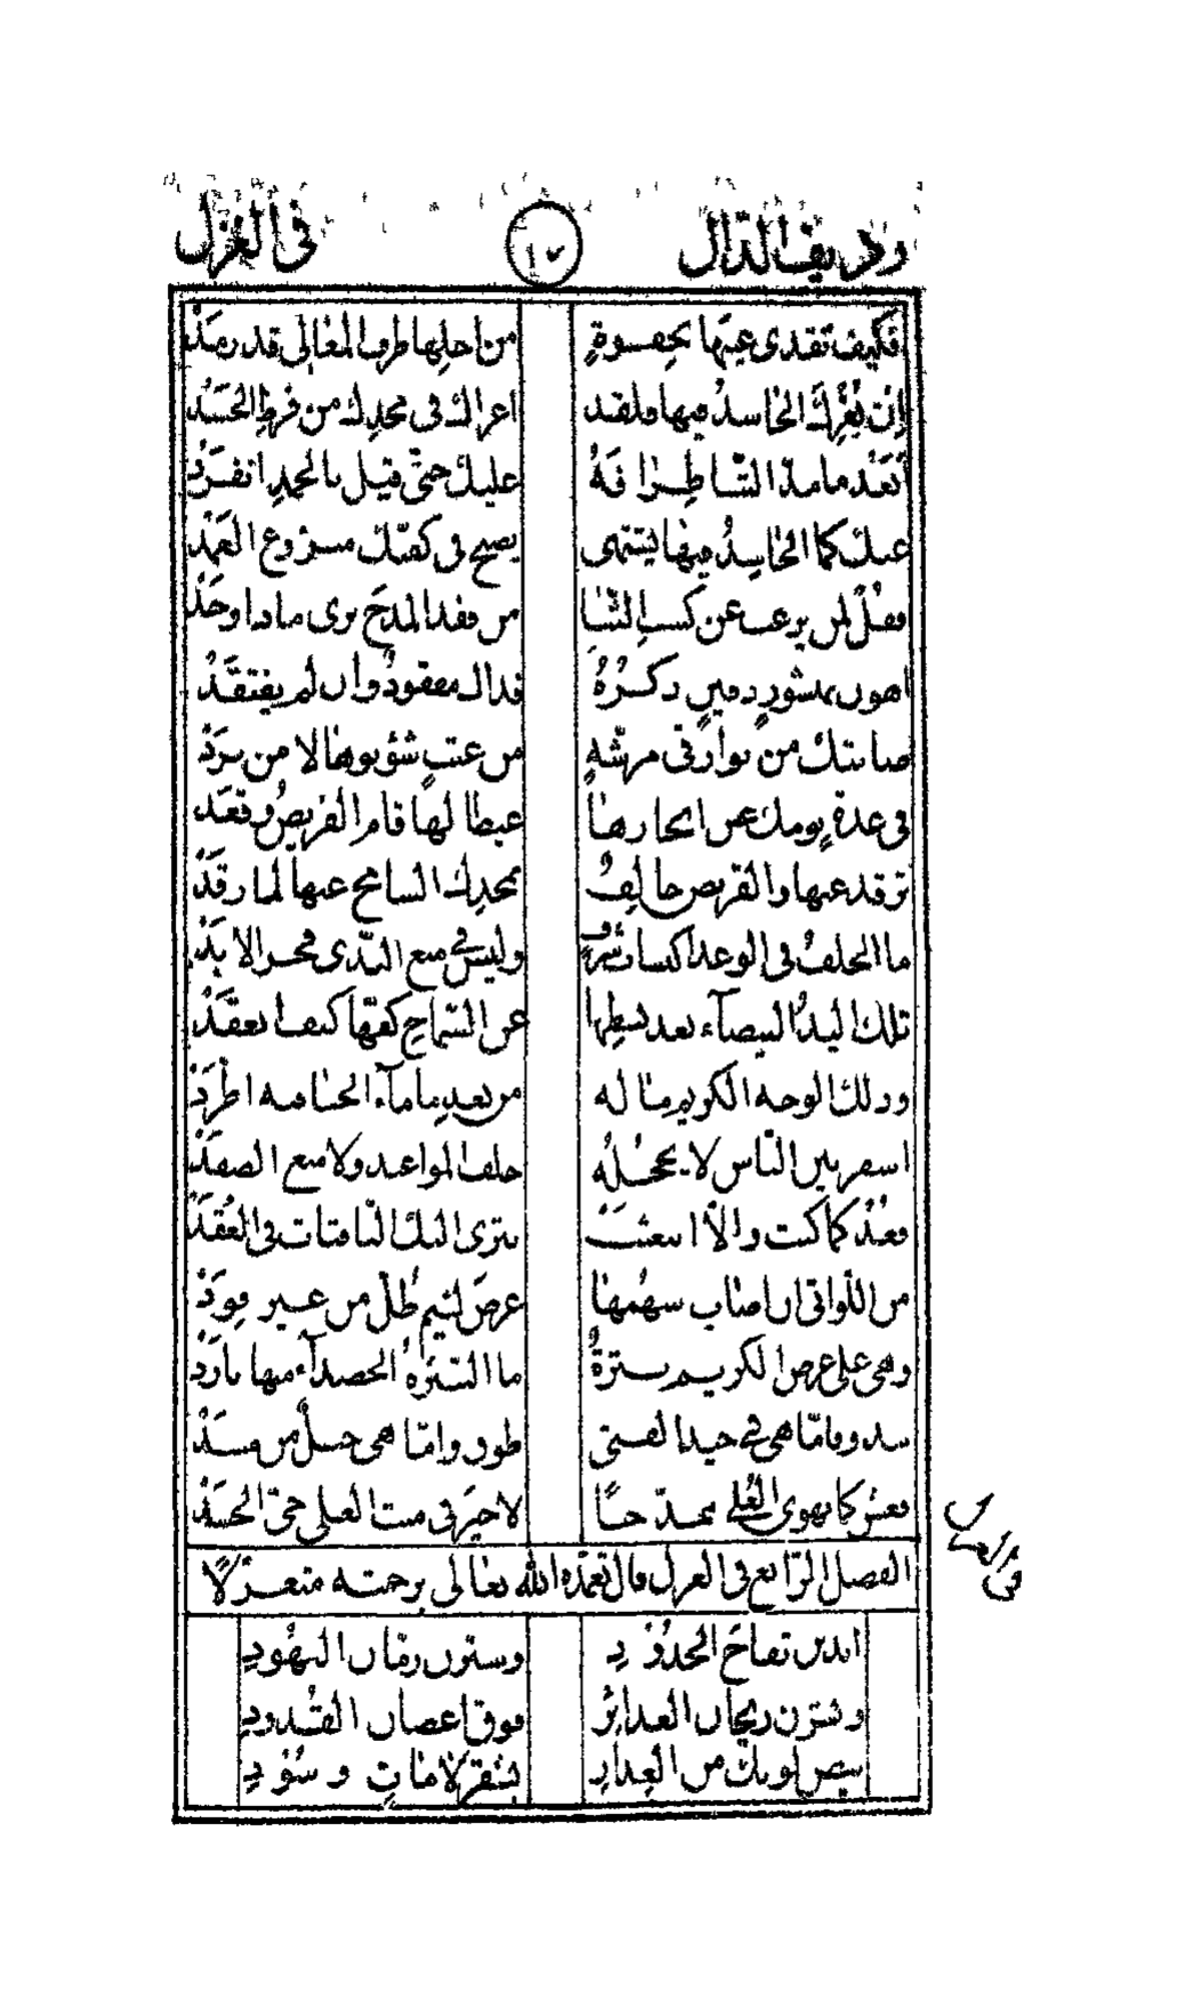 رديف الدال ١٧ في الغزل
فكيف تقدى عينها بجفوةٍ من اجلها طرف المعالى قد رمد
إن يُغرك الحاسدُ فيها فلقد اغراك فى مجدك من فرط الحسد
أبَعْد ما مدّ الثنا طرافهُ عليك حتى قيل بالحمد انفرد
عنك كما الحاسدُ فيها يشتهى يصبح فى كفّك منزوع العمد
فقلْ لمن يرغب عن كسب الثنا من فقد المدح يرى ماذا وجد
اهون بمثور دفين ذكرُهُ فذاك مفقودٌ وان لم يفتقد
صانتك من بوارق مرشّةٍ من عتبٍ شؤبوبها لا من برد
فى عدةٍ يومك عن انجازها غيظا لها قام القريضُ وقعد
ترقد عنها والقريض حالفٌ بمجدك السامح عنها لما رقد
ما الخلفُ فى الوعد اكتساب شرفٍ وليس فى منع الندى فخر الابد
تلك اليدُ البيضآء بعد بسطها عن السّماح كفّها كيف انعقد
وذلك الوجه الكريم ما له من بعد ما مآء الحيا فيه اطرد
اسفر بين الناس لا يخجلُه خلف المواعيد ولا منع الصفد
فعُدْ كما كنت والّا انبعثت تترى اليك النافثات فى العُقد
من اللّواتى ان اصاب سهمُها عرض لئيم طُلّ من غير قود
وهى على عرض الكريم سترةٌ ما النثرةُ الحصدآء منها بارد
تبدو فامّا هى فى جيد الفتى طوق وامّا هى حبلٌ من مسد
فعش كما يهوى العُلى ممدّحا لا خيرَ فى ميت العلى حىّ الحسد
الفصل الرّابع فى الغزل قال تغمّده الله تعالى برحمته متغزّلا
فى الغزل
ابدين تفاحَ الخدُودِ وسترن رمّان النهُودِ
ونشرن ريحان الغدائر فوق اغصان القُدودِ
بيض لوينك من العِذار بنقر لاماتٍ وسُودِ